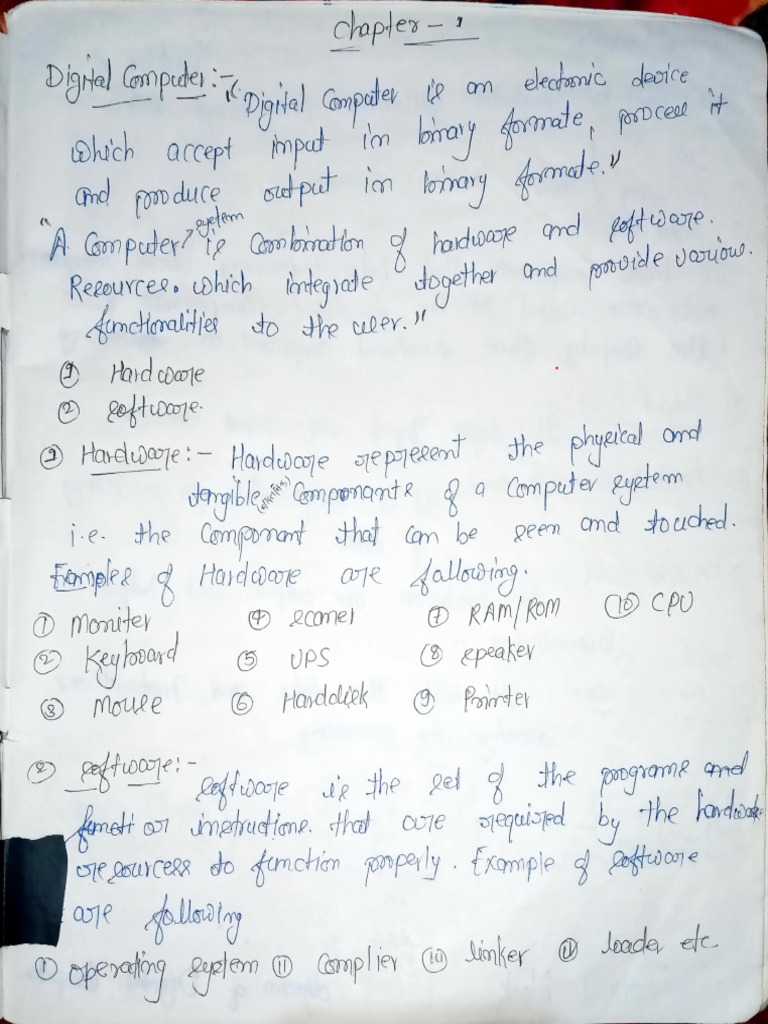 Chapter - 1
Digital Computer :- "Digital Computer is an electronic device
which accept input in binary formate, process it
and produce output in binary formate."
"A Computer system is Combination of hardware and software.
Resources. which integrate together and provide various.
functionalities to the user."
① Hardware
② software.
① Hardware :- Hardware represent the physical and
tangible Componants of a Computer system
i.e. the Componant that can be seen and touched.
Examples of Hardware are fallowing.
① Moniter ④ scanner ⑦ RAM/ROM ⑩ CPU
② Keyboard ⑤ UPS ⑧ speaker
③ Mouse ⑥ Harddisk ⑨ Printer
② software :- software is the set of the programs and
or instructions. that are required by the hardware
resourcess to function properly. Example of software
are following
① operating system ⑪ Complier ⑩ linker ⑪ loader etc.